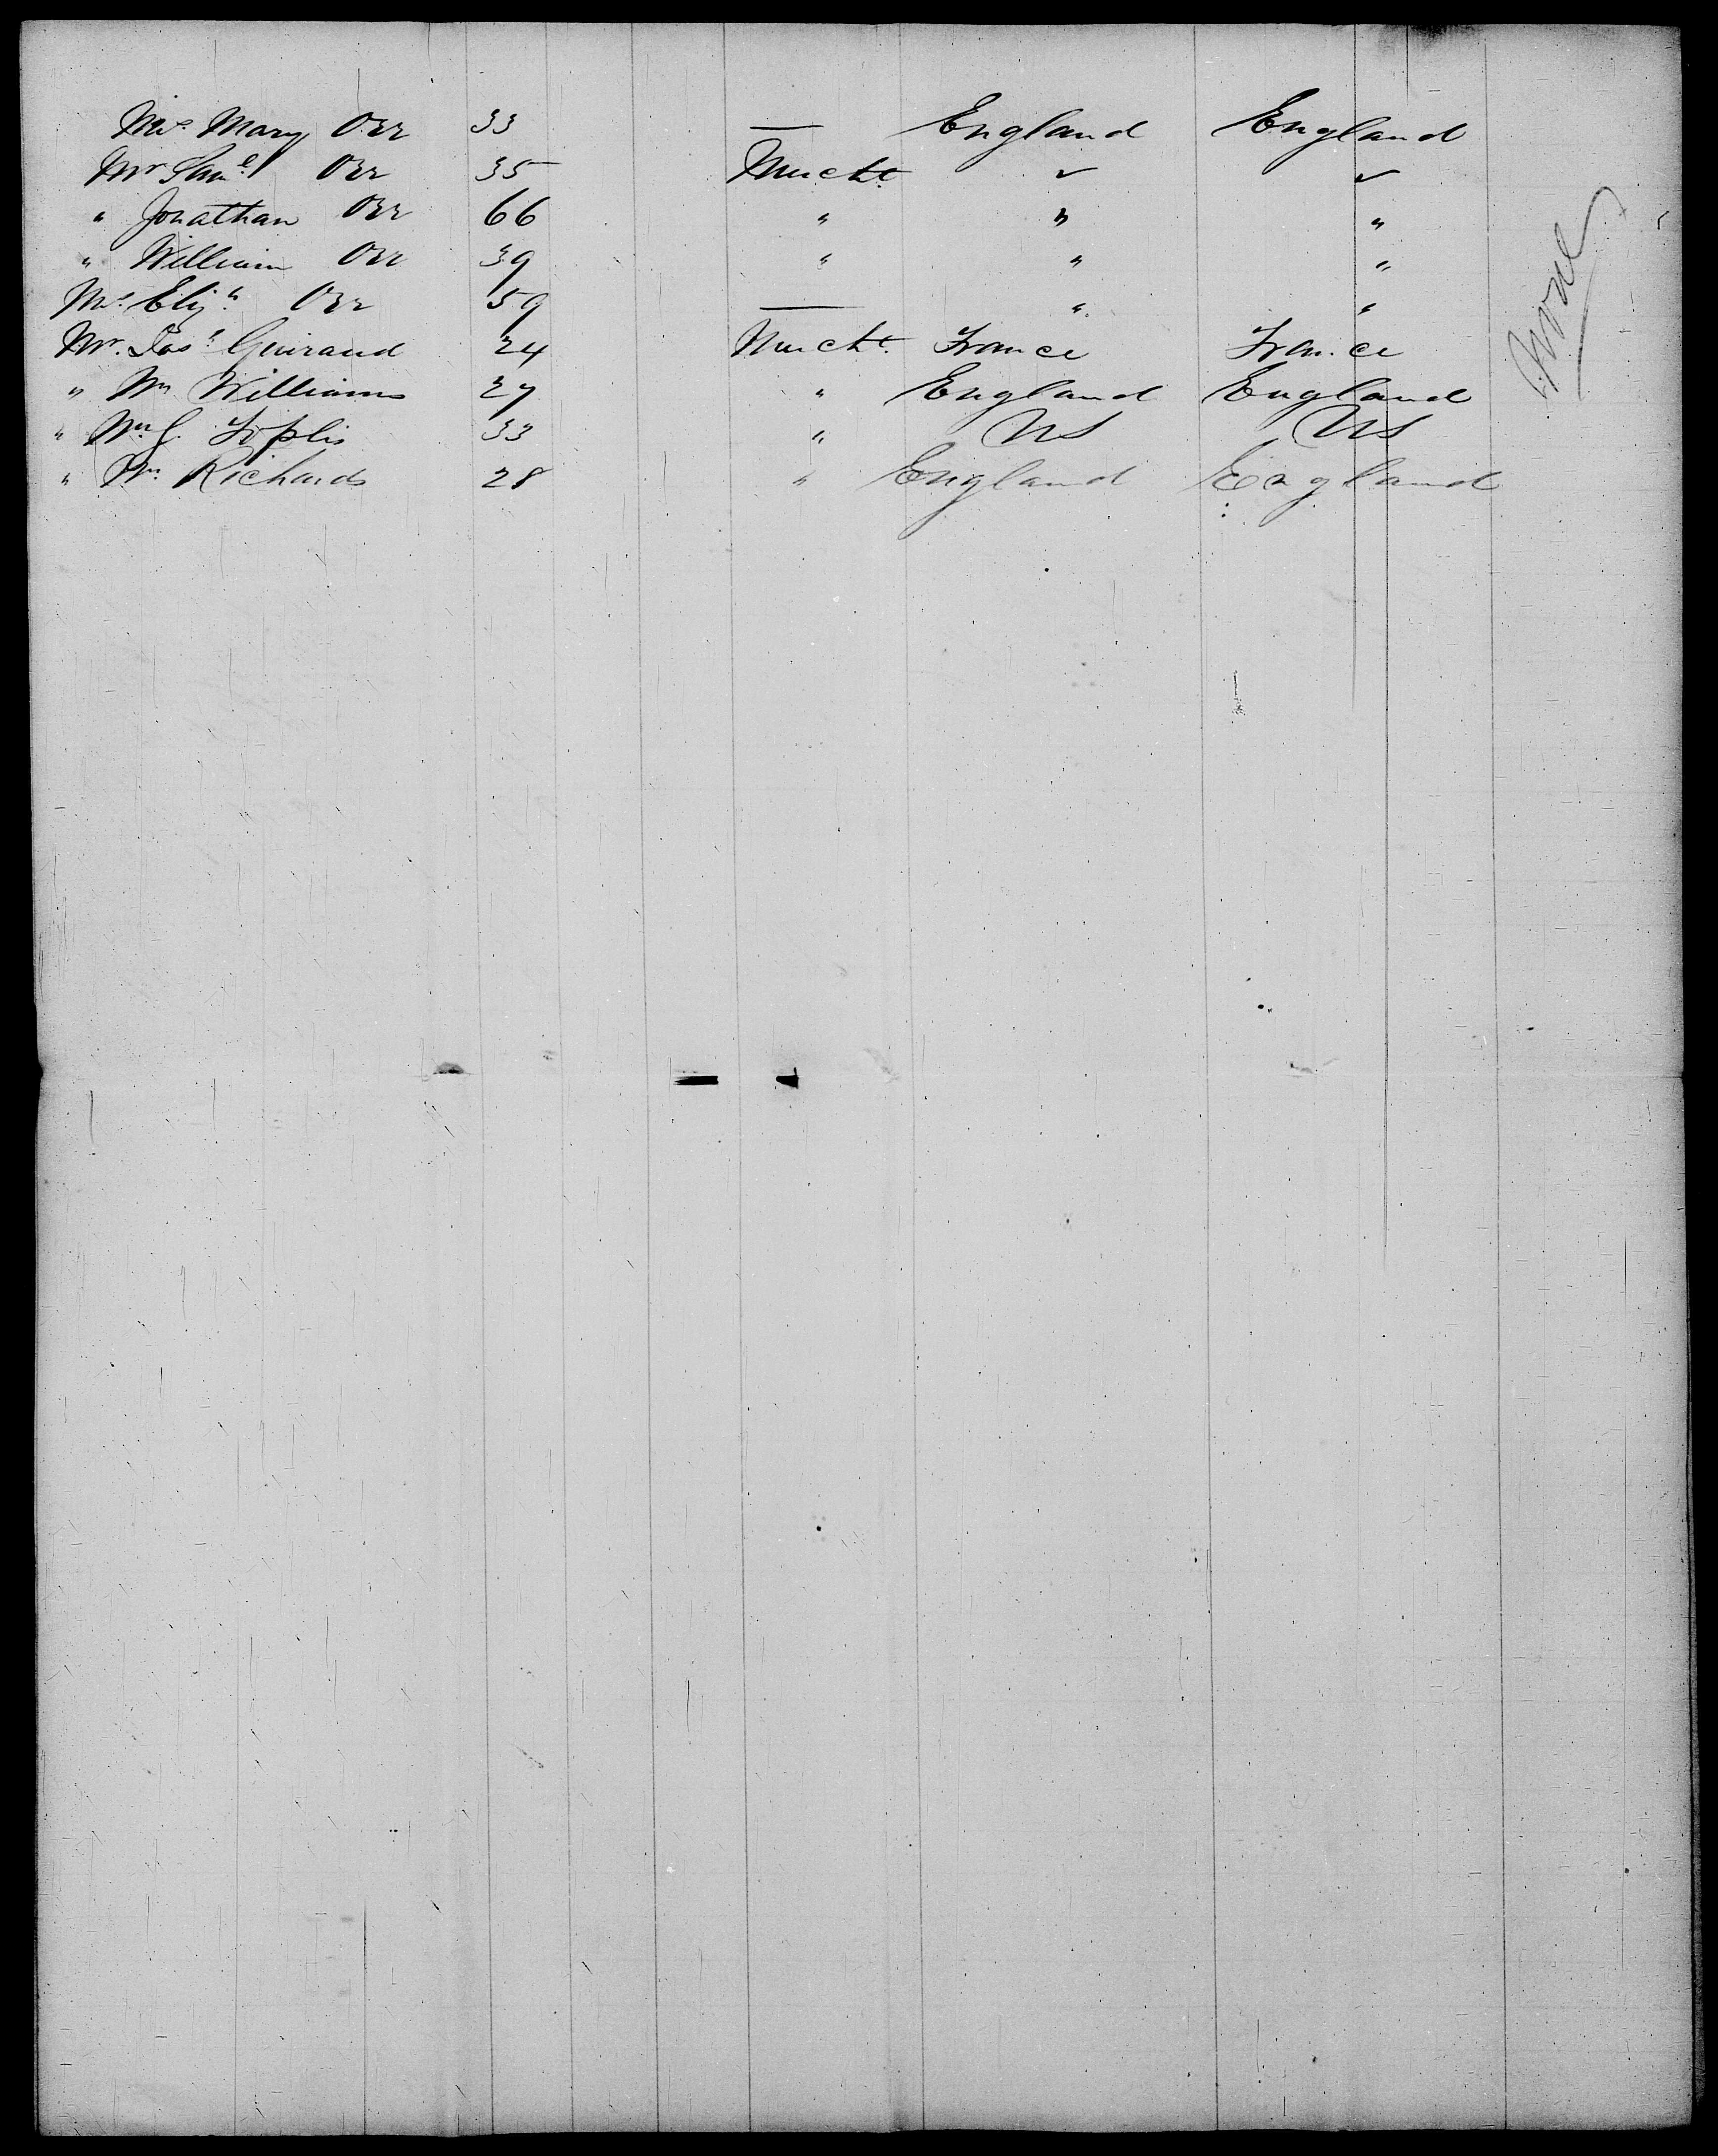 Mrs. Mary Orr 33 — England England
Mr Saml Orr 35 Mercht " "
" Jonathan Orr 66 " " "
" William Orr 39 " " "
Mrs Elizh Orr 59 — " "
Mr. Jas Guiraud 24 Mercht. France France
" Wm Williams 27 " England England
" Wm J. Toplis 33 " US US
" Wm Richards 28 " England England
None